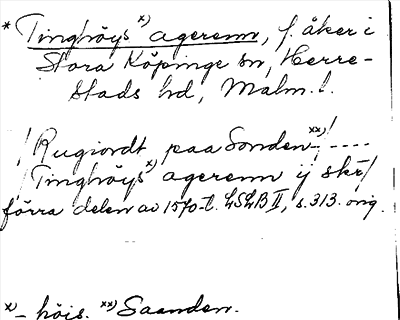 * Tinghöys x) agerenn, f. åker i
Stora Köpinge sn, Herre-
stads hd, Malm. l.
/Rugiordt paa Sonden xx)/ ----
/Tinghöys x) agerenn ij skr/
förra delen av 1570-t. LSLB II, s. 313. orig.
x) - höis. xx) Saanden.